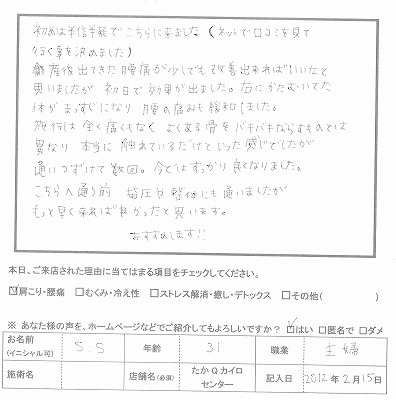 初めは半信半疑でこちらに来ました(ネットで口コミを見て
行く事を決めました)
産後出てきた腰痛が少しでも改善出来ればいいなと
思いましたが 初日で効果が出ました。右にかたむいてた
体がまっすぐになり 腰の痛みも緩和しました。
施術は全く痛くもなく よくある骨をバキバキならすものとは
異なり 本当に触れているだけといった感じでしたが
通いつづけて数回。今ではすっかり良くなりました。
こちらへ通う前 指圧や整体にも通いましたが
もっと早く来れば良かったと思います。
おすすめします!!
本日、ご来店された理由に当てはまる項目をチェックしてください。
☑肩こり・腰痛 □むくみ・冷え性 □ストレス解消・癒し・デトックス □その他( )
※ あなた様の声を、ホームページなどでご紹介してもよろしいですか? ☑はい □匿名で □ダメ
お名前(イニシャル可) S.S 年齢 31 職業 主婦
施術名 店舗名(必須) たかQカイロセンター 記入日 2012年2月15日